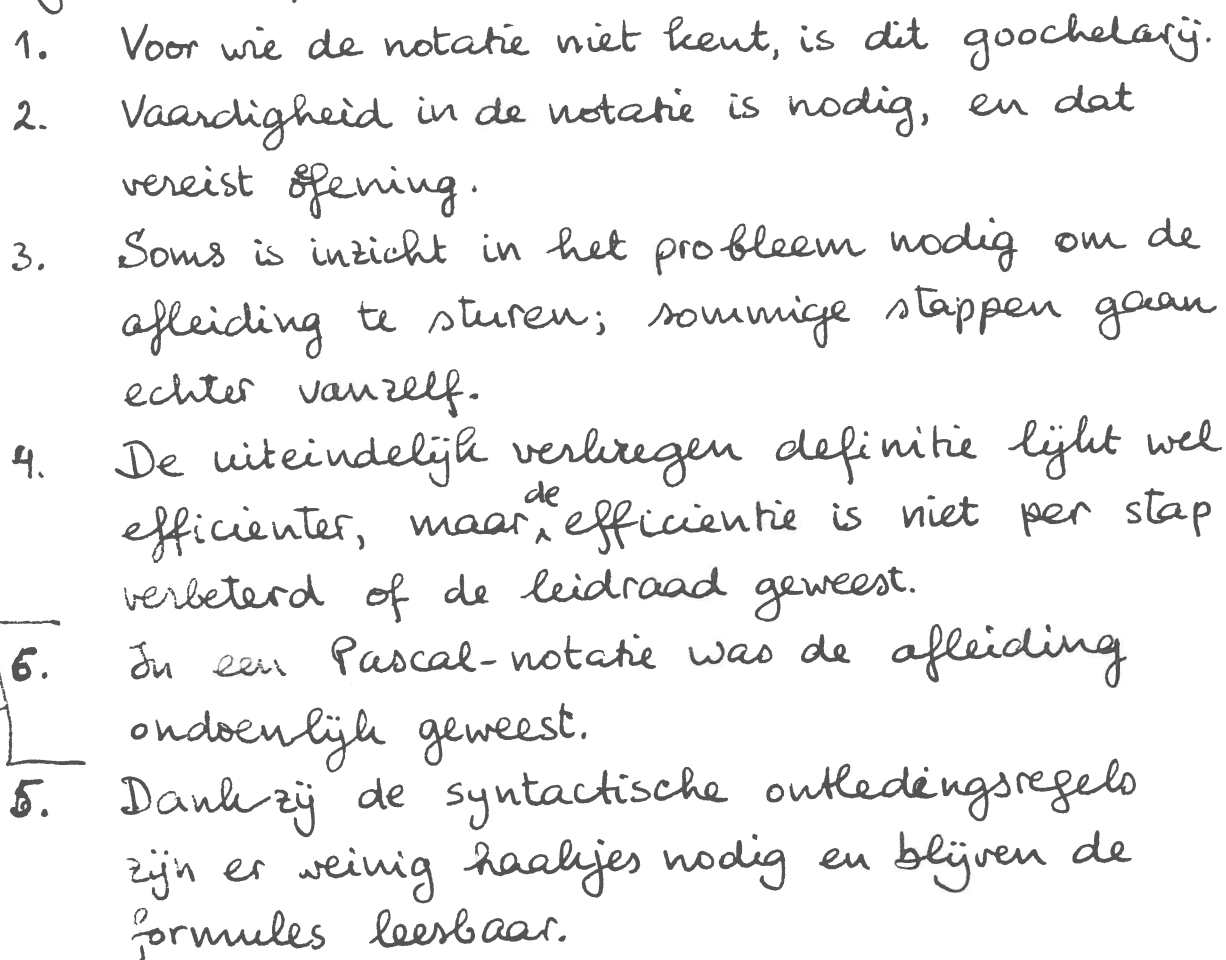 1. Voor wie de notatie niet kent, is dit goochelarij.
2. Vaardigheid in de notatie is nodig, en dat
vereist oefening.
3. Soms is inzicht in het probleem nodig om de
afleiding te sturen; sommige stappen gaan
echter vanzelf.
4. De uiteindelijk verkregen definitie lijkt wel
efficienter, maar de efficientie is niet per stap
verbeterd of de leidraad geweest.
6. In een Pascal-notatie was de afleiding
ondoenlijk geweest.
5. Dankzij de syntactische ontledingsregels
zijn er weinig haakjes nodig en blijven de
formules leesbaar.